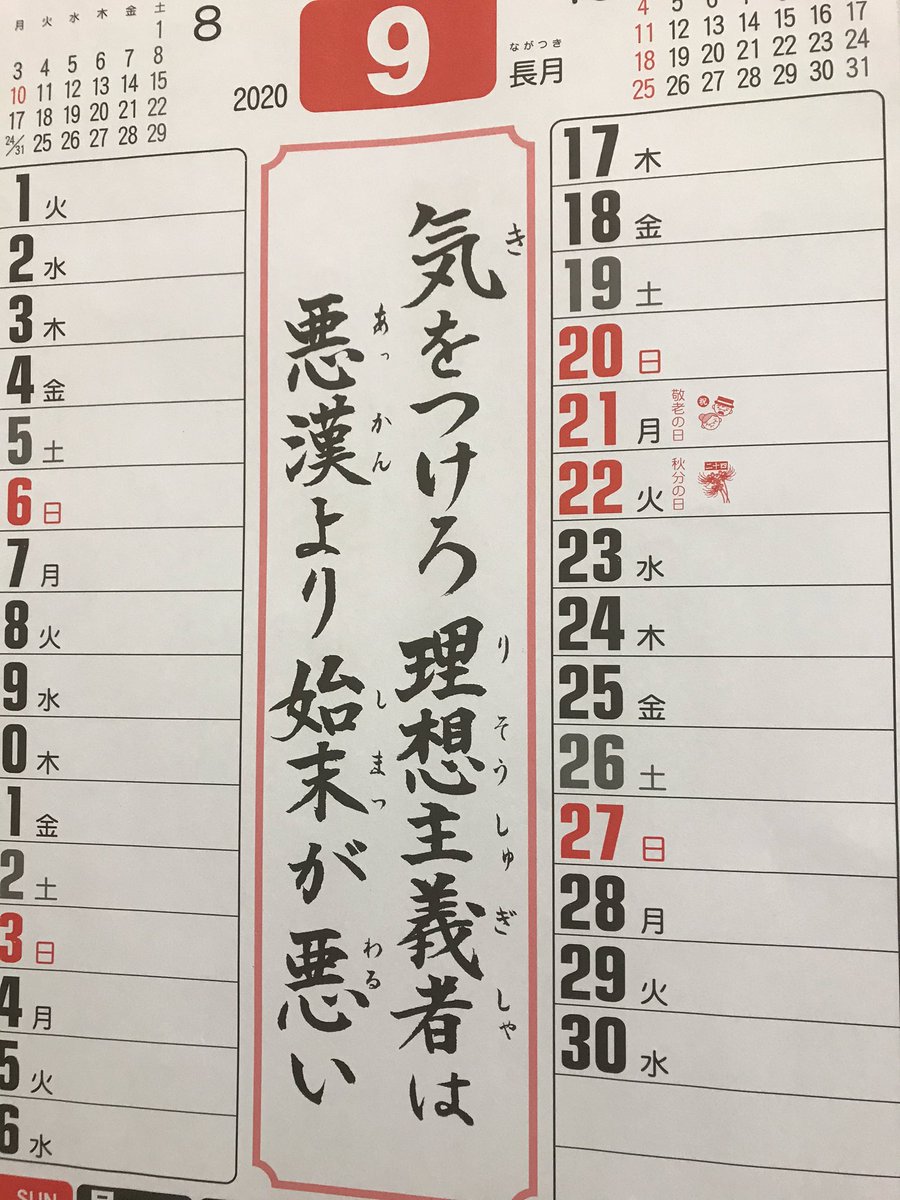 月 火 水 木 金 土
1
3 4 5 6 7 8
10 11 12 13 14 15
17 18 19 20 21 22
24/31 25 26 27 28 29
8
2020
9
ながつき
長月
4 5 6 7 8 9 10
11 12 13 14 15 16 17
18 19 20 21 22 23 24
25 26 27 28 29 30 31
1 火
2 水
3 木
4 金
5 土
6 日
7 月
8 火
9 水
0 木
1 金
2 土
3 日
4 月
5 火
6 水
気をつけろ 理想主義者は
き りそうしゅぎしゃ
悪漢より始末が悪い
あっかん しまつ わる
17 木
18 金
19 土
20 日
21 月 敬老の日 祝
22 火 秋分の日
23 水
24 木
25 金
26 土
27 日
28 月
29 火
30 水
SUN